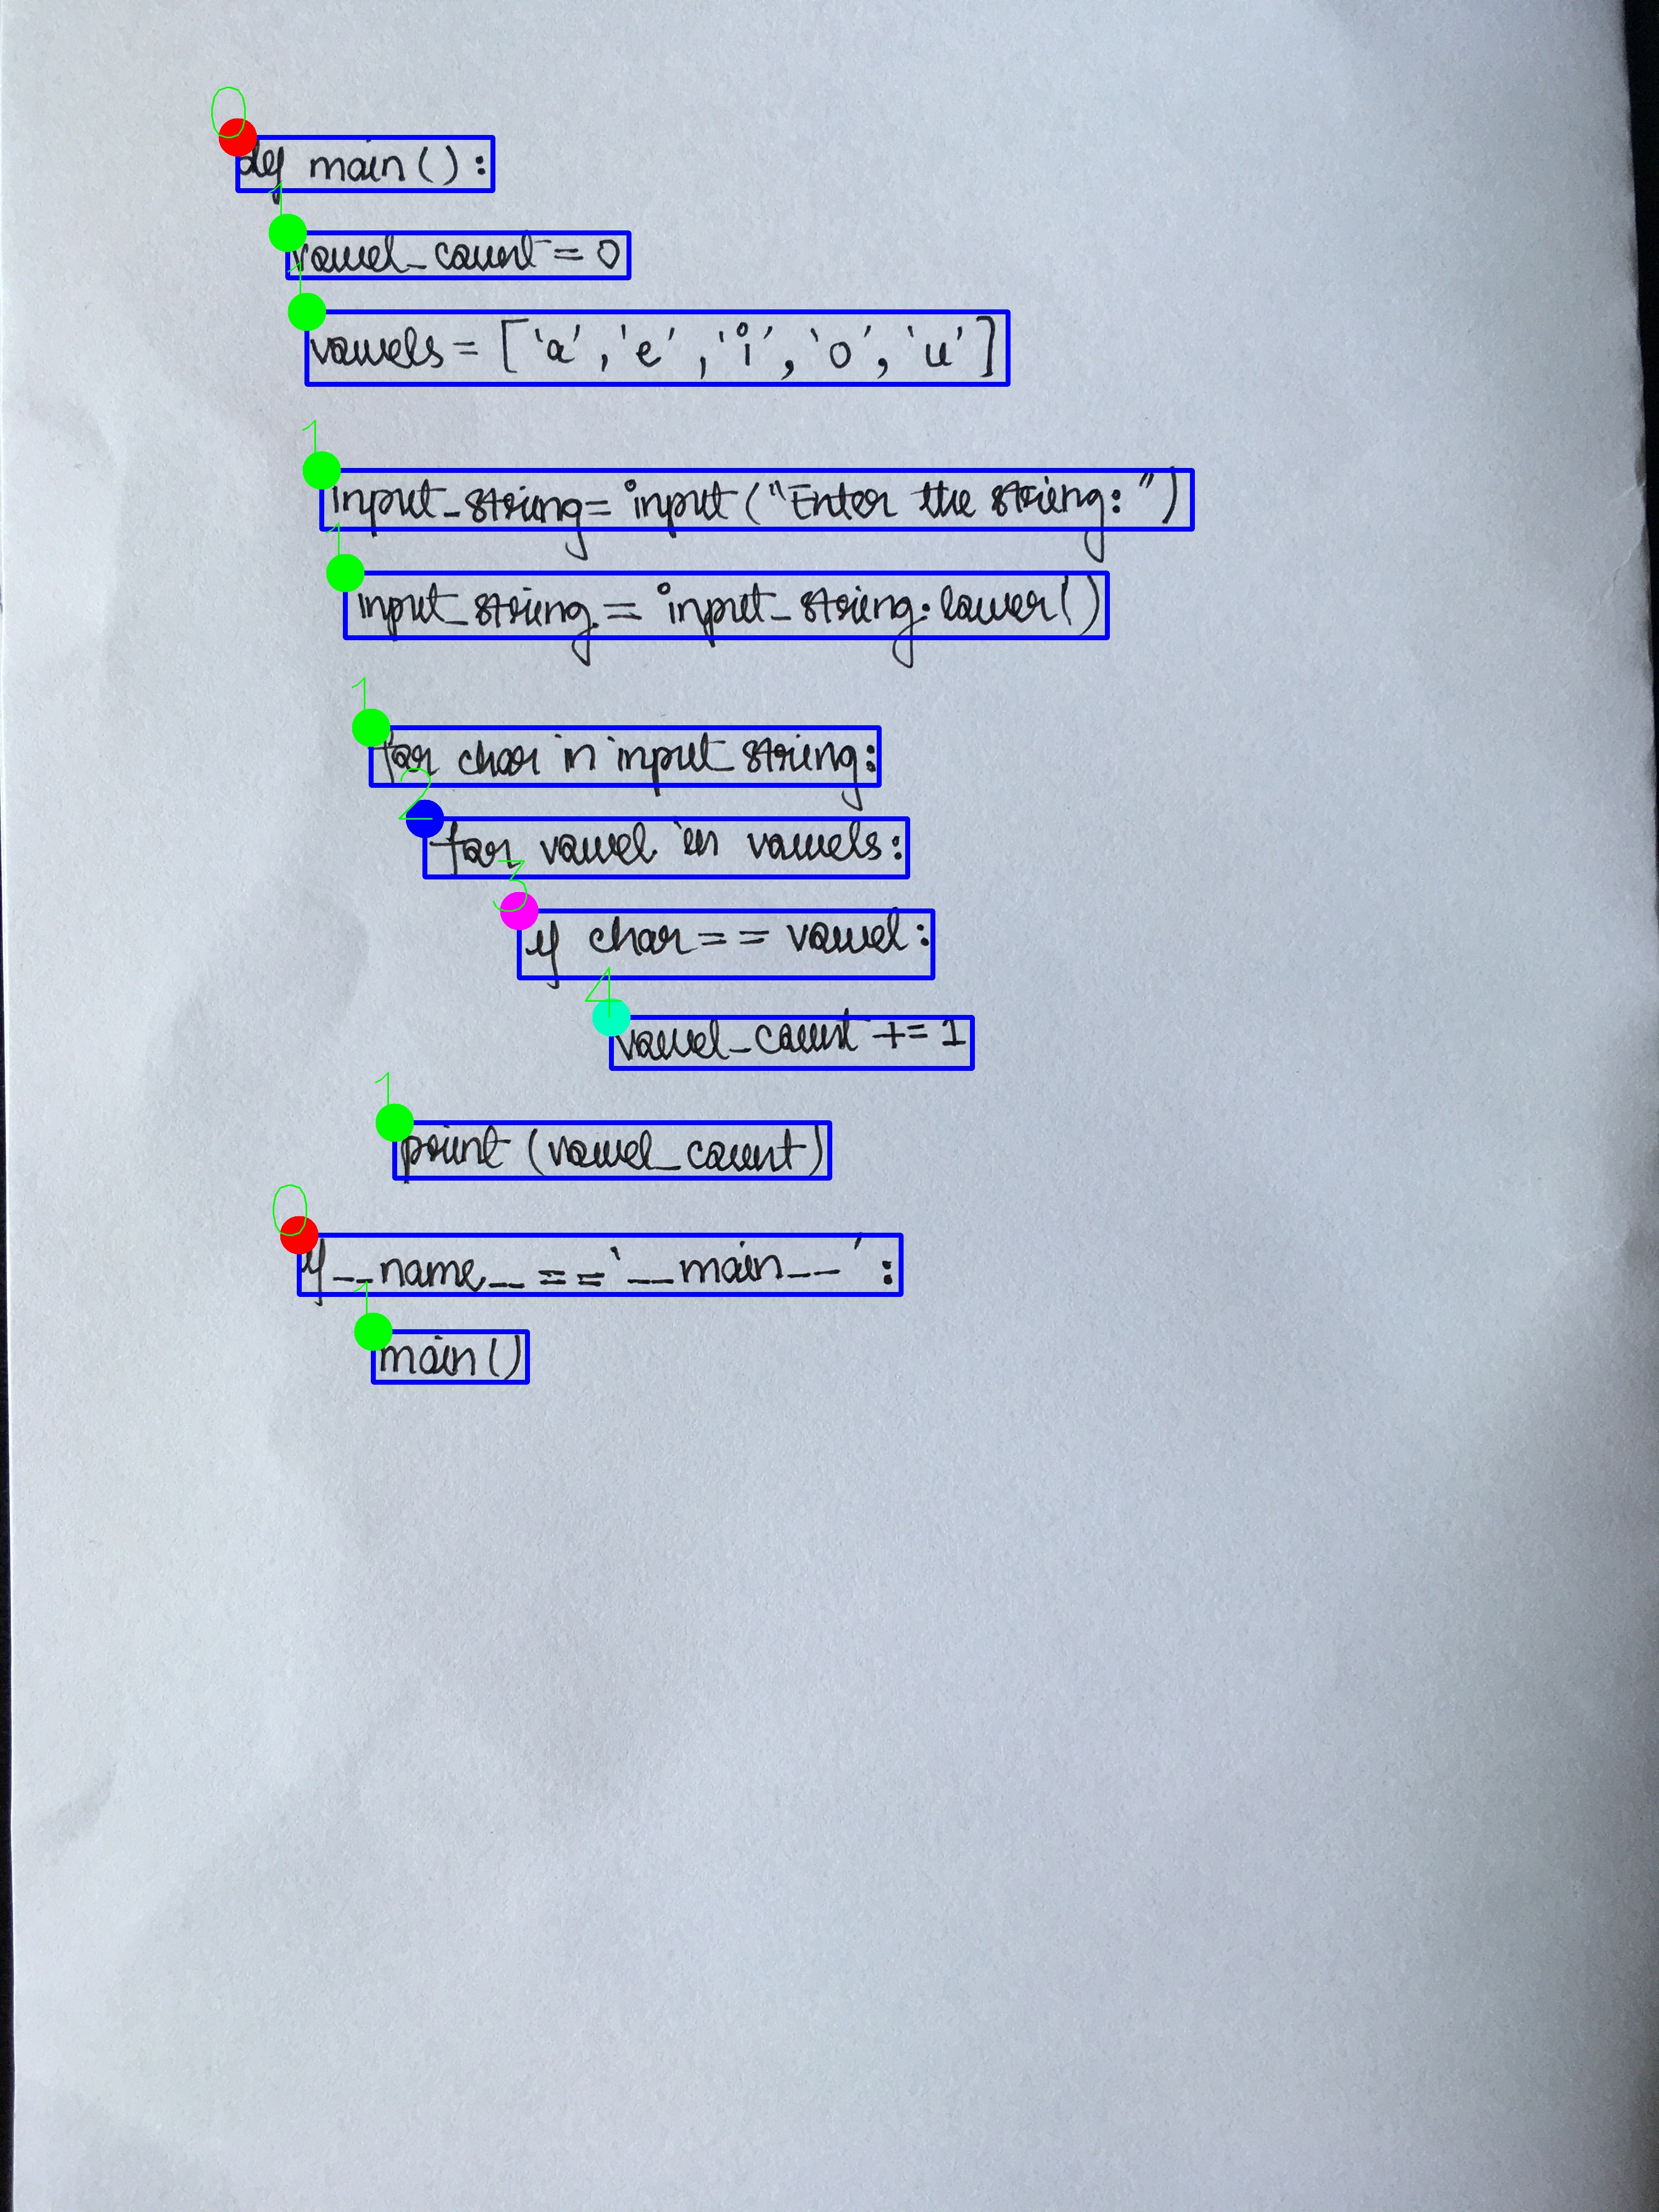 0
def main():
1
vowel_count = 0
1
vowels = ['a', 'e', 'i', 'o', 'u']
1
input_string = input("Enter the string:")
1
input_string = input_string.lower()
1
for char in input_string:
2
for vowel in vowels:
3
if char == vowel:
4
vowel_count += 1
1
print(vowel_count)
0
if __name__ == '__main__':
1
main()